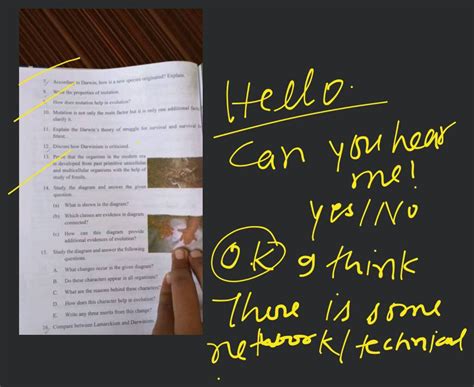 7. According to Darwin, how is a new species originated? Explain.
8. Write the properties of mutation.
How does mutation help in evolution?
10. Mutation is not only the main factor but it is only one additional fact
clarify it.
11. Explain the Darwin's theory of struggle for survival and survival
fittest.
12. Discuss how Darwinism is criticized.
13. Prove that the organism in the modern era
is developed from past primitive unicellular
and multicellular organisms with the help of
study of fossils.
14. Study the diagram and answer the given
question.
(a) What is shown in the diagram?
(b) Which classes are evidence in diagram
connected?
(c) How can this diagram provide
additional evidences of evolution?
15. Study the diagram and answer the following
questions.
A. What changes occur in the given diagram?
B. Do these characters appear in all organisms?
C. What are the reasons behind these characters?
D. How does this character help in evolution?
E. Write any three merits from this change?
Compare between Lamarckism and Darwinism.
Hello.
Can you hear
me!
yes/No
OK I think
There is some
network/technical